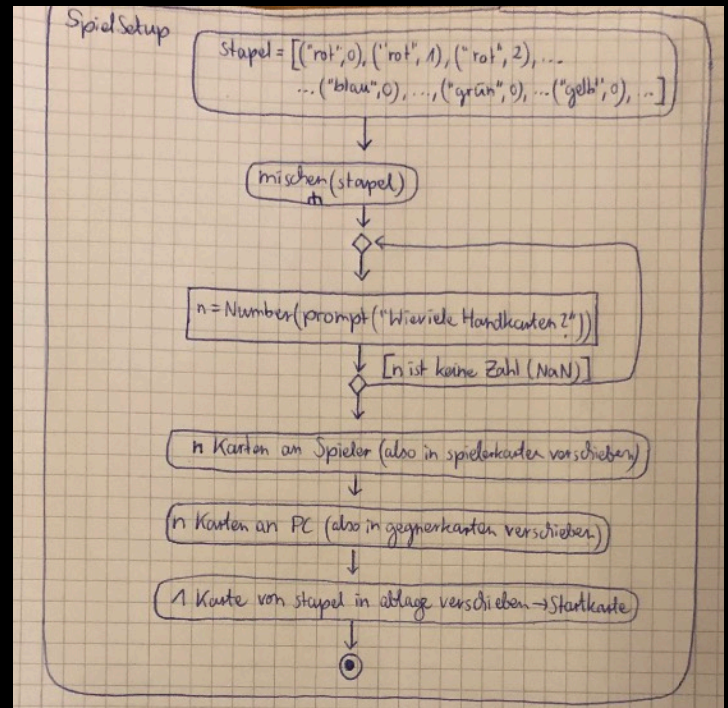 SpielSetup
stapel = [("rot",0), ("rot", 1), ("rot", 2), ...
... ("blau",0), ..., ("grün", 0), ... ("gelb", 0), ... ]
mischen (stapel)
n = Number(prompt("Wieviele Handkarten?"))
[n ist keine Zahl (NaN)]
n Karten an Spieler (also in spielerkarten verschieben)
n Karten an PC (also in gegnerkarten verschieben)
1 Karte von stapel in ablage verschieben → Startkarte